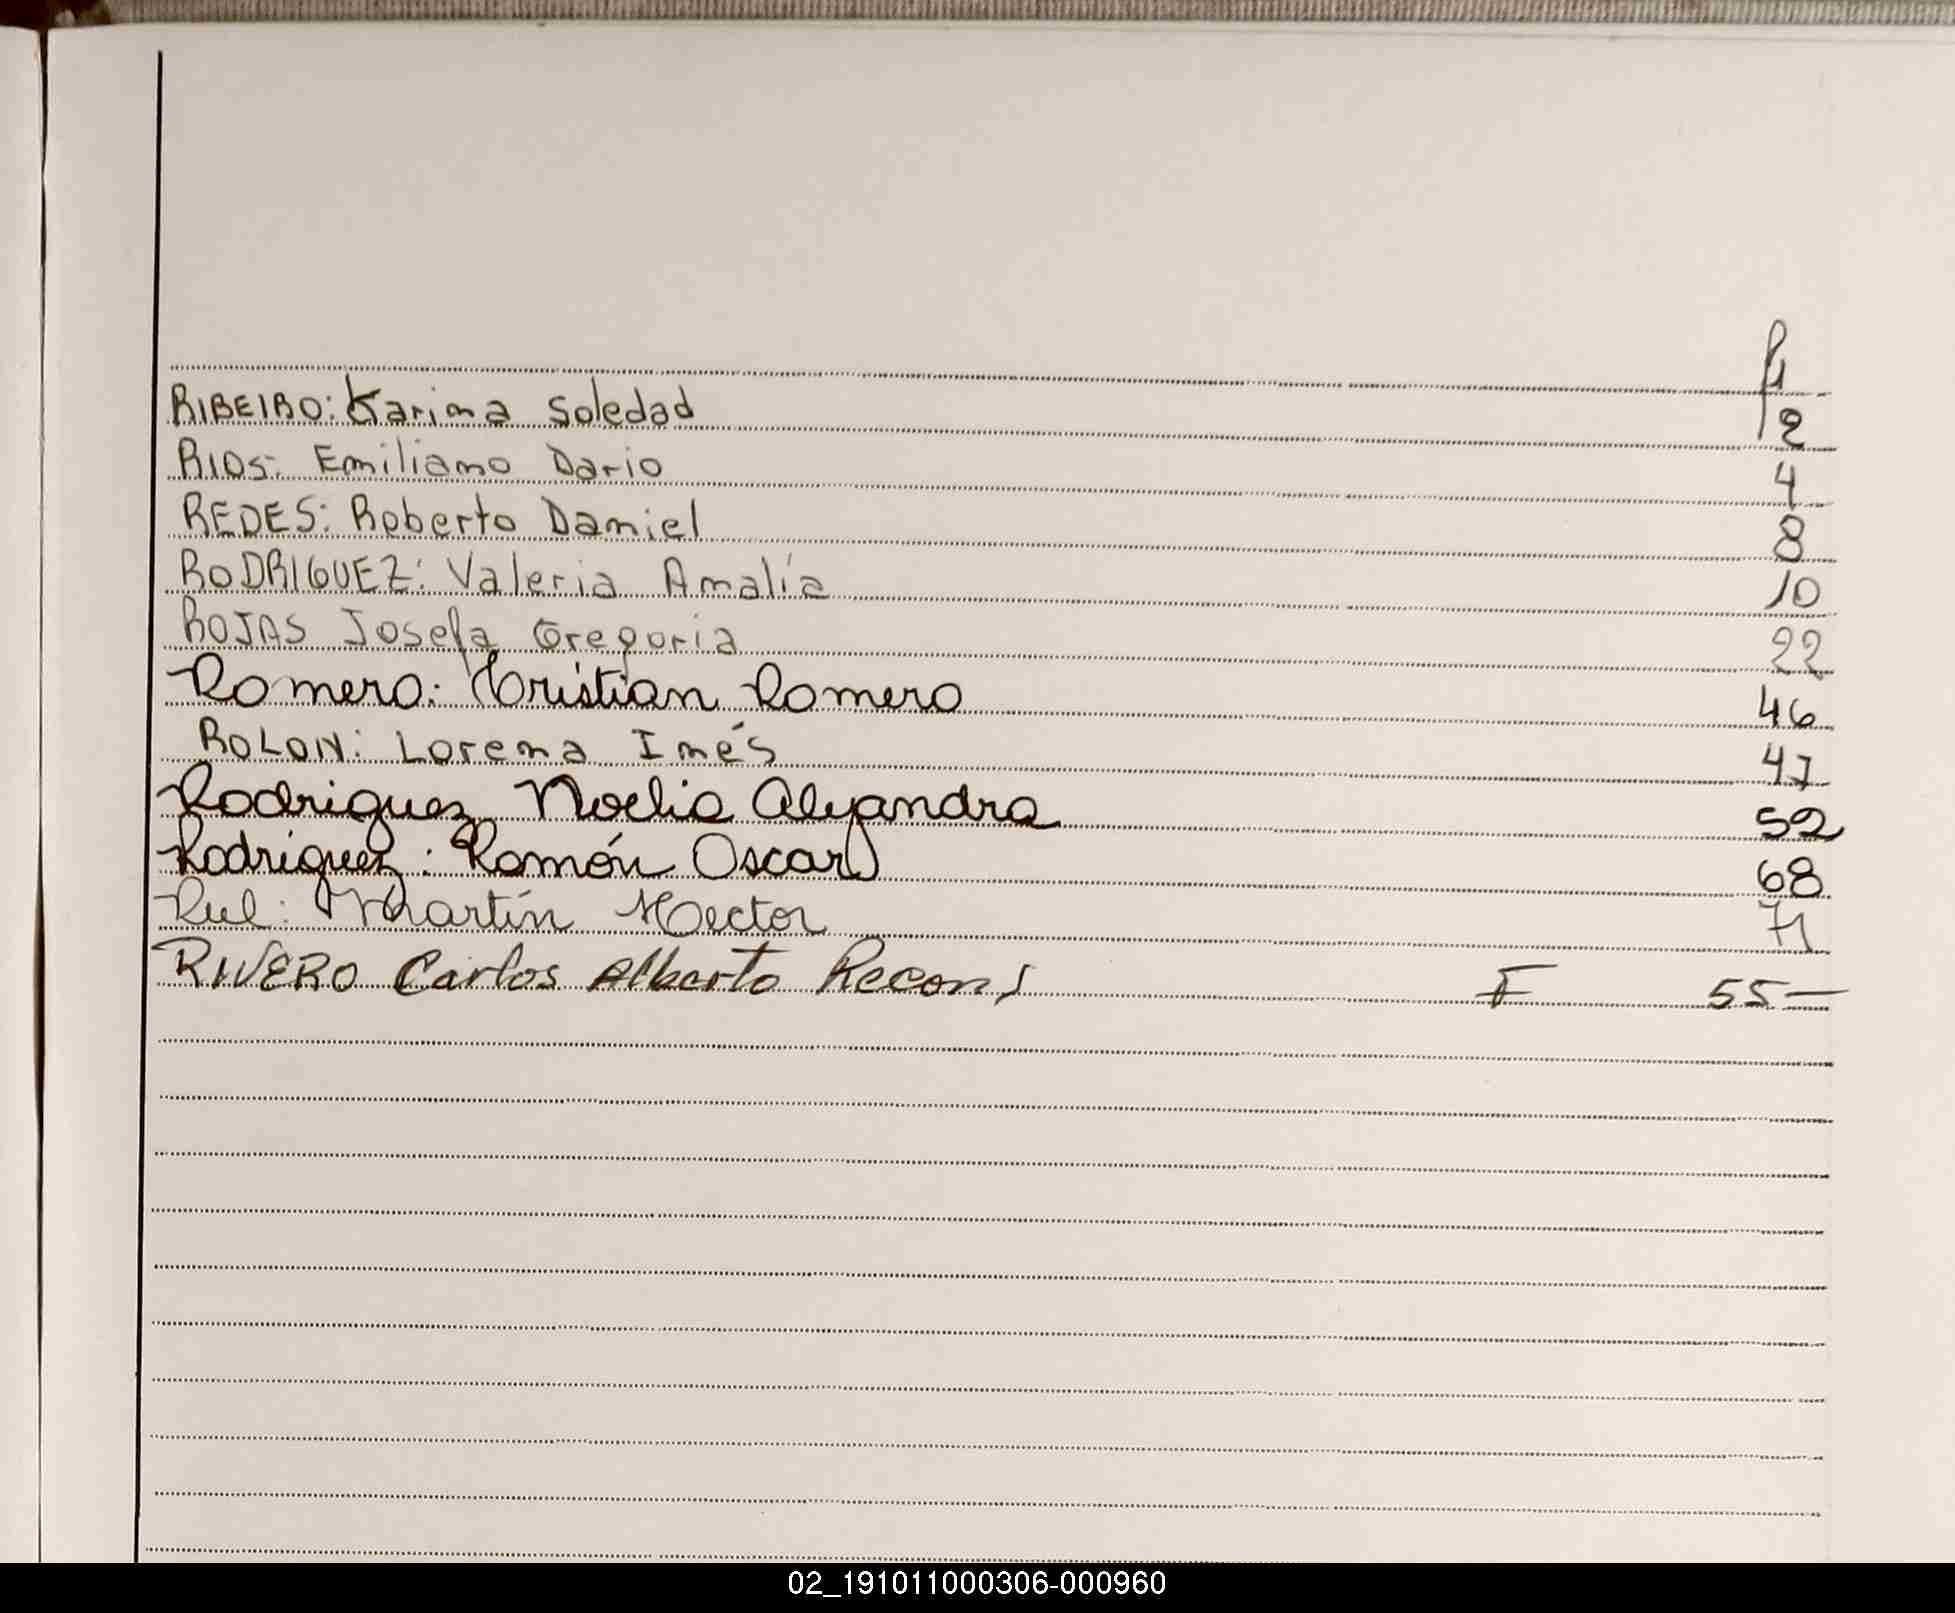 f
RIBEIRO: Karina Soledad 2
RIOS: Emiliano Dario 4
REDES: Roberto Daniel 8
RODRIGUEZ: Valeria Amalía 10
ROJAS Josefa Gregoria 22
Romero: Cristian Romero 46
ROLON: Lorena Inés 47
Rodriguez Noelia Alejandra 52
Rodriguez: Ramón Oscar 68
Rul: Martín Hector 71
RIVERO Carlos Alberto Recons F 55—
02_191011000306-000960